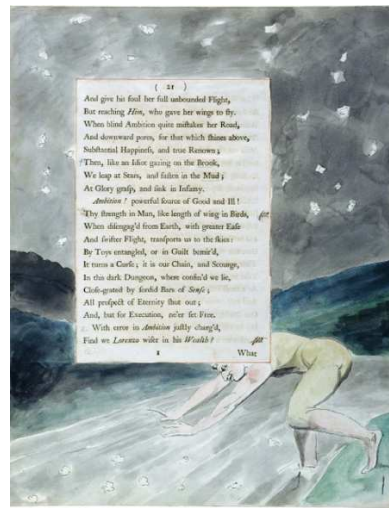 ( 21 )
And give his soul her full unbounded Flight,
But reaching Him, who gave her wings to fly.
When blind Ambition quite mistakes her Road,
And downward pores, for that which shines above,
Substantial Happiness, and true Renown;
Then, like an Idiot gazing on the Brook,
We leap at Stars, and fasten in the Mud;
At Glory grasp, and sink in Infamy.
Ambition! powerful source of Good and Ill!
Thy strength in Man, like length of wing in Birds,
When disingag'd from Earth, with greater Ease
And swifter Flight, transports us to the skies:
By Toys entangled, or in Guilt bemir'd,
It turns a Curse; it is our Chain, and Scourge,
In this dark Dungeon, where confin'd we lie,
Close-grated by sordid Bars of Sense;
All prospect of Eternity shut out;
And, but for Execution, ne'er set Free.
With error in Ambition justly charg'd,
Find we Lorenzo wiser in his Wealth?
What